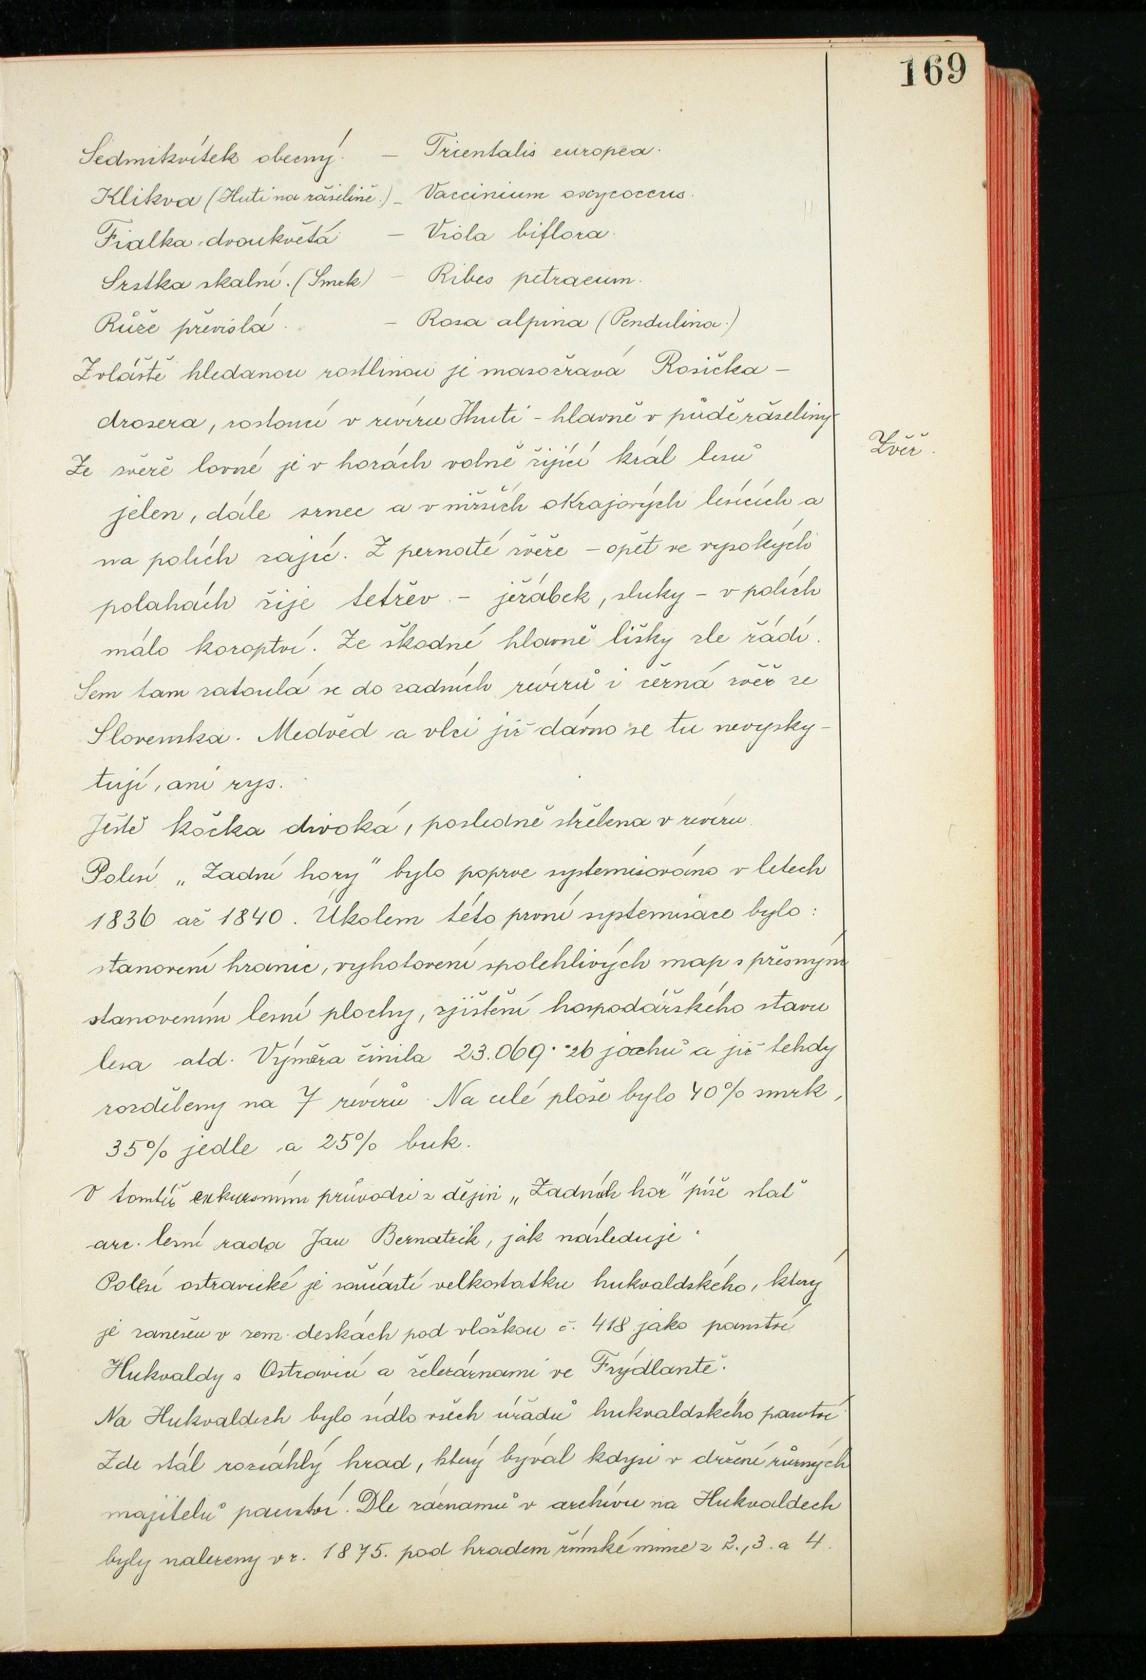 169
Sedmikvítek obecný. – Trientalis europea.
Klikva (Huti na rašelině.) – Vaccinium oxycoccus.
Fialka dvoukvětá – Viola biflora.
Srstka skalní. (Smrk) – Ribes petraeum.
Růže převislá. – Rosa alpina (Pendulina.)
Zvláště hledanou rostlinou je masožravá Rosička –
drosera, rostoucí v revíru Huti – hlavně v půdě rašeliny
Ze zvěře lovné je v horách volně žijící král lesů
Zvěř.
jelen, dále srnec a v nižších okrajových lesících a
na polích zajíc. Z pernaté zvěře – opět ve vysokých
polahách žije tetřev – jeřábek, sluky – v polích
málo koroptví. Ze škodné hlavně lišky zle řádí.
Sem tam zatoulá se do zadních revírů i černá zvěř ze
Slovenska. Medvěd a vlci již dávno se tu nevysky-
tují, ani rys.
Ještě kočka divoká, posledně střelena v revíru
Polesí „Zadní hory" bylo poprve systemisováno v letech
1836 až 1840. Úkolem této první systemisace bylo:
stanovení hranic, vyhotovení spolehlivých map s přesným
stanovením lesní plochy, zjištění hospodářského stavu
lesa atd. Výměra činila 23.069·26 jochů a již tehdy
rozděleny na 7 revírů. Na celé ploše bylo 40% smrk,
35% jedle a 25% buk.
V tomtéž exkursním průvodci z dějin „Zadních hor" píše stať
arc. lesní rada Jan Bernatzik, jak následuje:
Polesí ostravické je součástí velkostatku hukvaldského, který
je zanešen v zem. deskách pod vložkou č. 418 jako panství
Hukvaldy s Ostravicí a železárnami ve Frýdlantě.
Na Hukvaldech bylo sídlo všech úřadů hukvaldského panství
Zde stál rozsáhlý hrad, který býval kdysi v držení různých
majitelů panství. Dle záznamů v archívu na Hukvaldech
byly nalezeny v r. 1875. pod hradem římské mince z 2., 3. a 4.